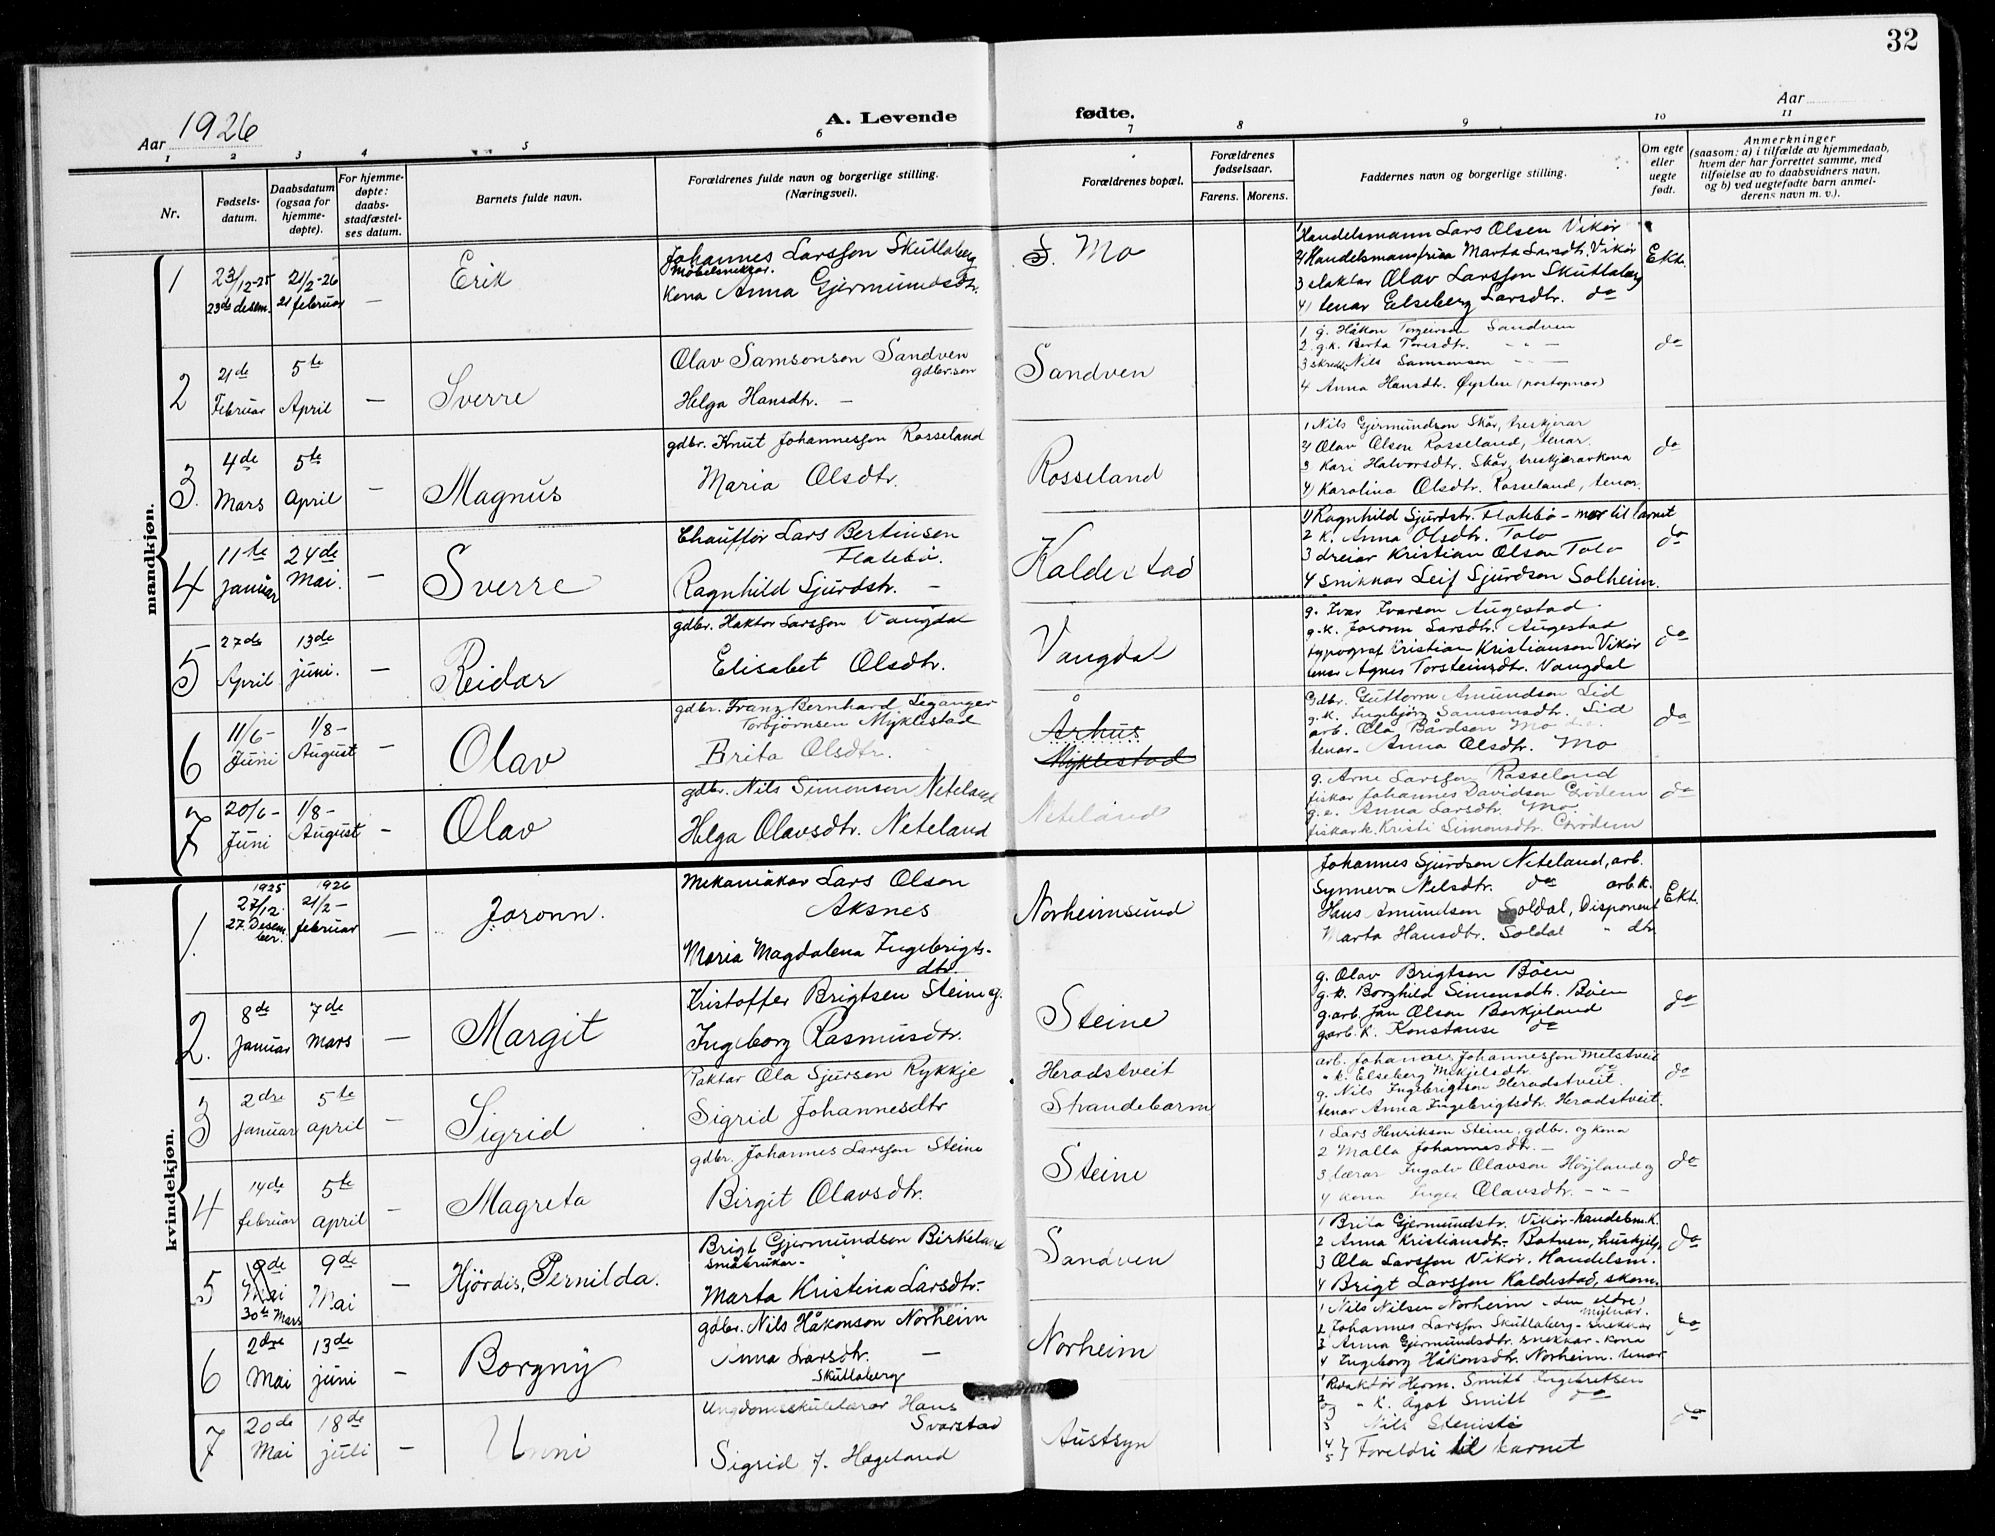 32
Aar 1926
A. Levende fødte.
Aar
1 2 3 4 5 6 7 8 9 10 11
Nr.
Fødsels-
datum.
Daabsdatum
(ogsaa for
hjemme-
døpte).
For hjemme-
døpte:
daabs-
stadfæstel-
ses datum.
Barnets fulde navn.
Forældrenes fulde navn og borgerlige stilling.
(Næringsvei).
Forældrenes bopæl.
Forældrenes
fødselsaar.
Farens. Morens.
Faddernes navn og borgerlige stilling.
Om egte
eller
uegte
født.
Anmerkninger
(saasom: a) i tilfælde av hjemmedaab,
hvem der har forrettet samme, med
tilføielse av to daabsvidners navn,
og b) ved uegtefødte barn anmel-
derens navn m. v.).
mandkjøn.
1
23/12-25
23de desem.
21/2-26
21 februar
—
Erik
Johannes Larsson Skutlaberg
Møbelsnekkar.
Kona Anna Gjermundsdtr.
S. Mo
1 Handelsmann Lars Olsen Vikør
2) Handelsmannsfrua Marta Larsdtr. Vikør
3 slaktar Olav Larsson Skutlaberg
4) tenar Elseberg Larsdtr. do
Ekt.
2
21de
Februar
5te
April
—
Sverre
Olav Samsonson Sandven
gdbr.son
Helga Hansdtr. —
Sandven
1 g. Håkon Torgeirson Sandven
2 g.k. Berta Toresdtr. - " -
3 skredd. Nils Samsonson - " -
4 Anna Hansdtr. Øystese (postopnar)
do
3.
4de
Mars
5te
April
—
Magnus
gdbr. Knut Johannesson Rosseland
Maria Olsdtr.
Rosseland
1 Nils Gjermundson Skår, treskjerar
2) Olav Olsen Rosseland, tenar.
3 Kari Halvorsdtr. Skår, treskjerarkona
4) Karolina Olsdtr. Rosseland, tenar.
do
4
11te
Januar
24de
Mai.
—
Sverre
Chauffør Lars Bertinsen
Flatebø.
Ragnhild Sjurdstr. —
Kaldestad
1) Ragnhild Sjurdstr. Flatebø - mor til barnet
2 k. Anna Olsdtr. Tolo
3 dreiar Kristian Olson Tolo
4 snikkar Leif Sjurdson Solheim.
do
5
27de
April
13de
juni.
—
Reidar
gdbr. Haktor Larsson Vangdal
Elisabet Olsdtr.
Vangdal
g. Ivar Ivarson Augestad
g.k. Joronn Larsdtr. Augestad
typograf Kristian Kristianson Vikør
tenar Agnes Torsteinsdtr. Vangdal
do
6
11/6-
Juni
1/8-
August
—
Olav
gdbr. Franz Bernhard Leganger
Torbjørnsen Myklestad
Brita Olsdtr.
Århus
Myklestad
Gdbr. Guttorm Amundson Lid
g.k. Ingebjørg Samsonsdtr. Lid
arb. Ola Bårdsen Mo
tenar - Anna Olsdtr. Mo
do
7
20/6-
Juni
1/8-
August
—
Olav
gdbr. Nils Simonson Neteland
Helga Olavsdtr. Neteland
Neteland
g. Arne Larsson Rosseland
fiskar Johannes Davidson Grødem
g.k. Anna Larsdtr. Mo
fiskark. Kristi Simonsdtr. Grødem
do
kvindekjøn.
1.
1925
27/12.
27. Desem-
ber.
1926
21/2-
februar
—
Joronn.
Mekanikar Lars Olson
Aksnes
Maria Magdalena Ingebrigts-
dtr.
Norheimsund
Johannes Sjurdson Neteland, arb.
Synneva Nilsdtr. do arb.k.
Hans Amundsen Soldal, Disponent
Marta Hansdtr. Soldal " dtr.
Ekt.
2.
8de
Januar
7de
Mars
—
Margit
Kristoffer Brigtsen Steine g.
Ingeborg Rasmusdtr.
Steine
g. Olav Brigtson Bøen
g.k. Borghild Simonsdtr. Bøen
g.arb. Jon Olson Berkjeland
garb. k. Konstanse do
do
3
2dre
Januar
5te
April
—
Sigrid
Paktar Ola Sjurson Rykkje
Sigrid Johannesdtr
Heradstveit
Strandebarm
arb. Johannes Johannesson Melstveit
" k. Elseberg Mikjelsdtr. do
g. Nils Ingebrigtson Heradstveit.
tenar Anna Ingebrigtsdtr. Heradstveit.
do
4
14de
februar
5te
April
—
Magreta
gdbr. Johannes Larsson Steine
Birgit Olavsdtr.
Steine
1 Lars Henrikson Steine, gdbr. og kona
2 Malla Johannesdtr. —
3 lærar Ingalv Olavson Høyland og
4 kona Inger Olavsdtr. - " -
do
5
9de
Mai
30te Mars
9de
Mai
—
Hjördis, Pernilda.
Brigt Gjermundson Birkeland
småbrukar-
Marta Kristina Larsdtr-
Sandven
1 Brita Gjermundstr. Vikør-handelsm.k.
2 Anna Kristiansdtr. Botnen, huskjelp.
3 Ola Larsson Vikør, Handelsm.
4 Brigt Larsson Kaldestad, skom.
do
6
2dre
Mai
13de
juni
—
Borgny
gdbr. Nils Håkonson Norheim
Anna Larsdtr. —
Skutlaberg
Norheim
1 Nils Nilsen Norheim - den eldre)
mylnar.
2 Johannes Larsson Skutlaberg - snekkar
3 Anna Gjermundsdtr. snekkar-kona
4 Ingeborg Håkonsdtr. Norheim. tenar
do
7
20de
Mai
18de
juli
—
Unni
Ungdomsskulelærar Hans
Svarstad
Sigrid J. Hageland
Austsyn
1 Redaktør Herm. Smitt Ingebretsen
2 og " k. Ågot Smitt do
3 Nils Stenistø
4 } Foreldri til barnet
5
do